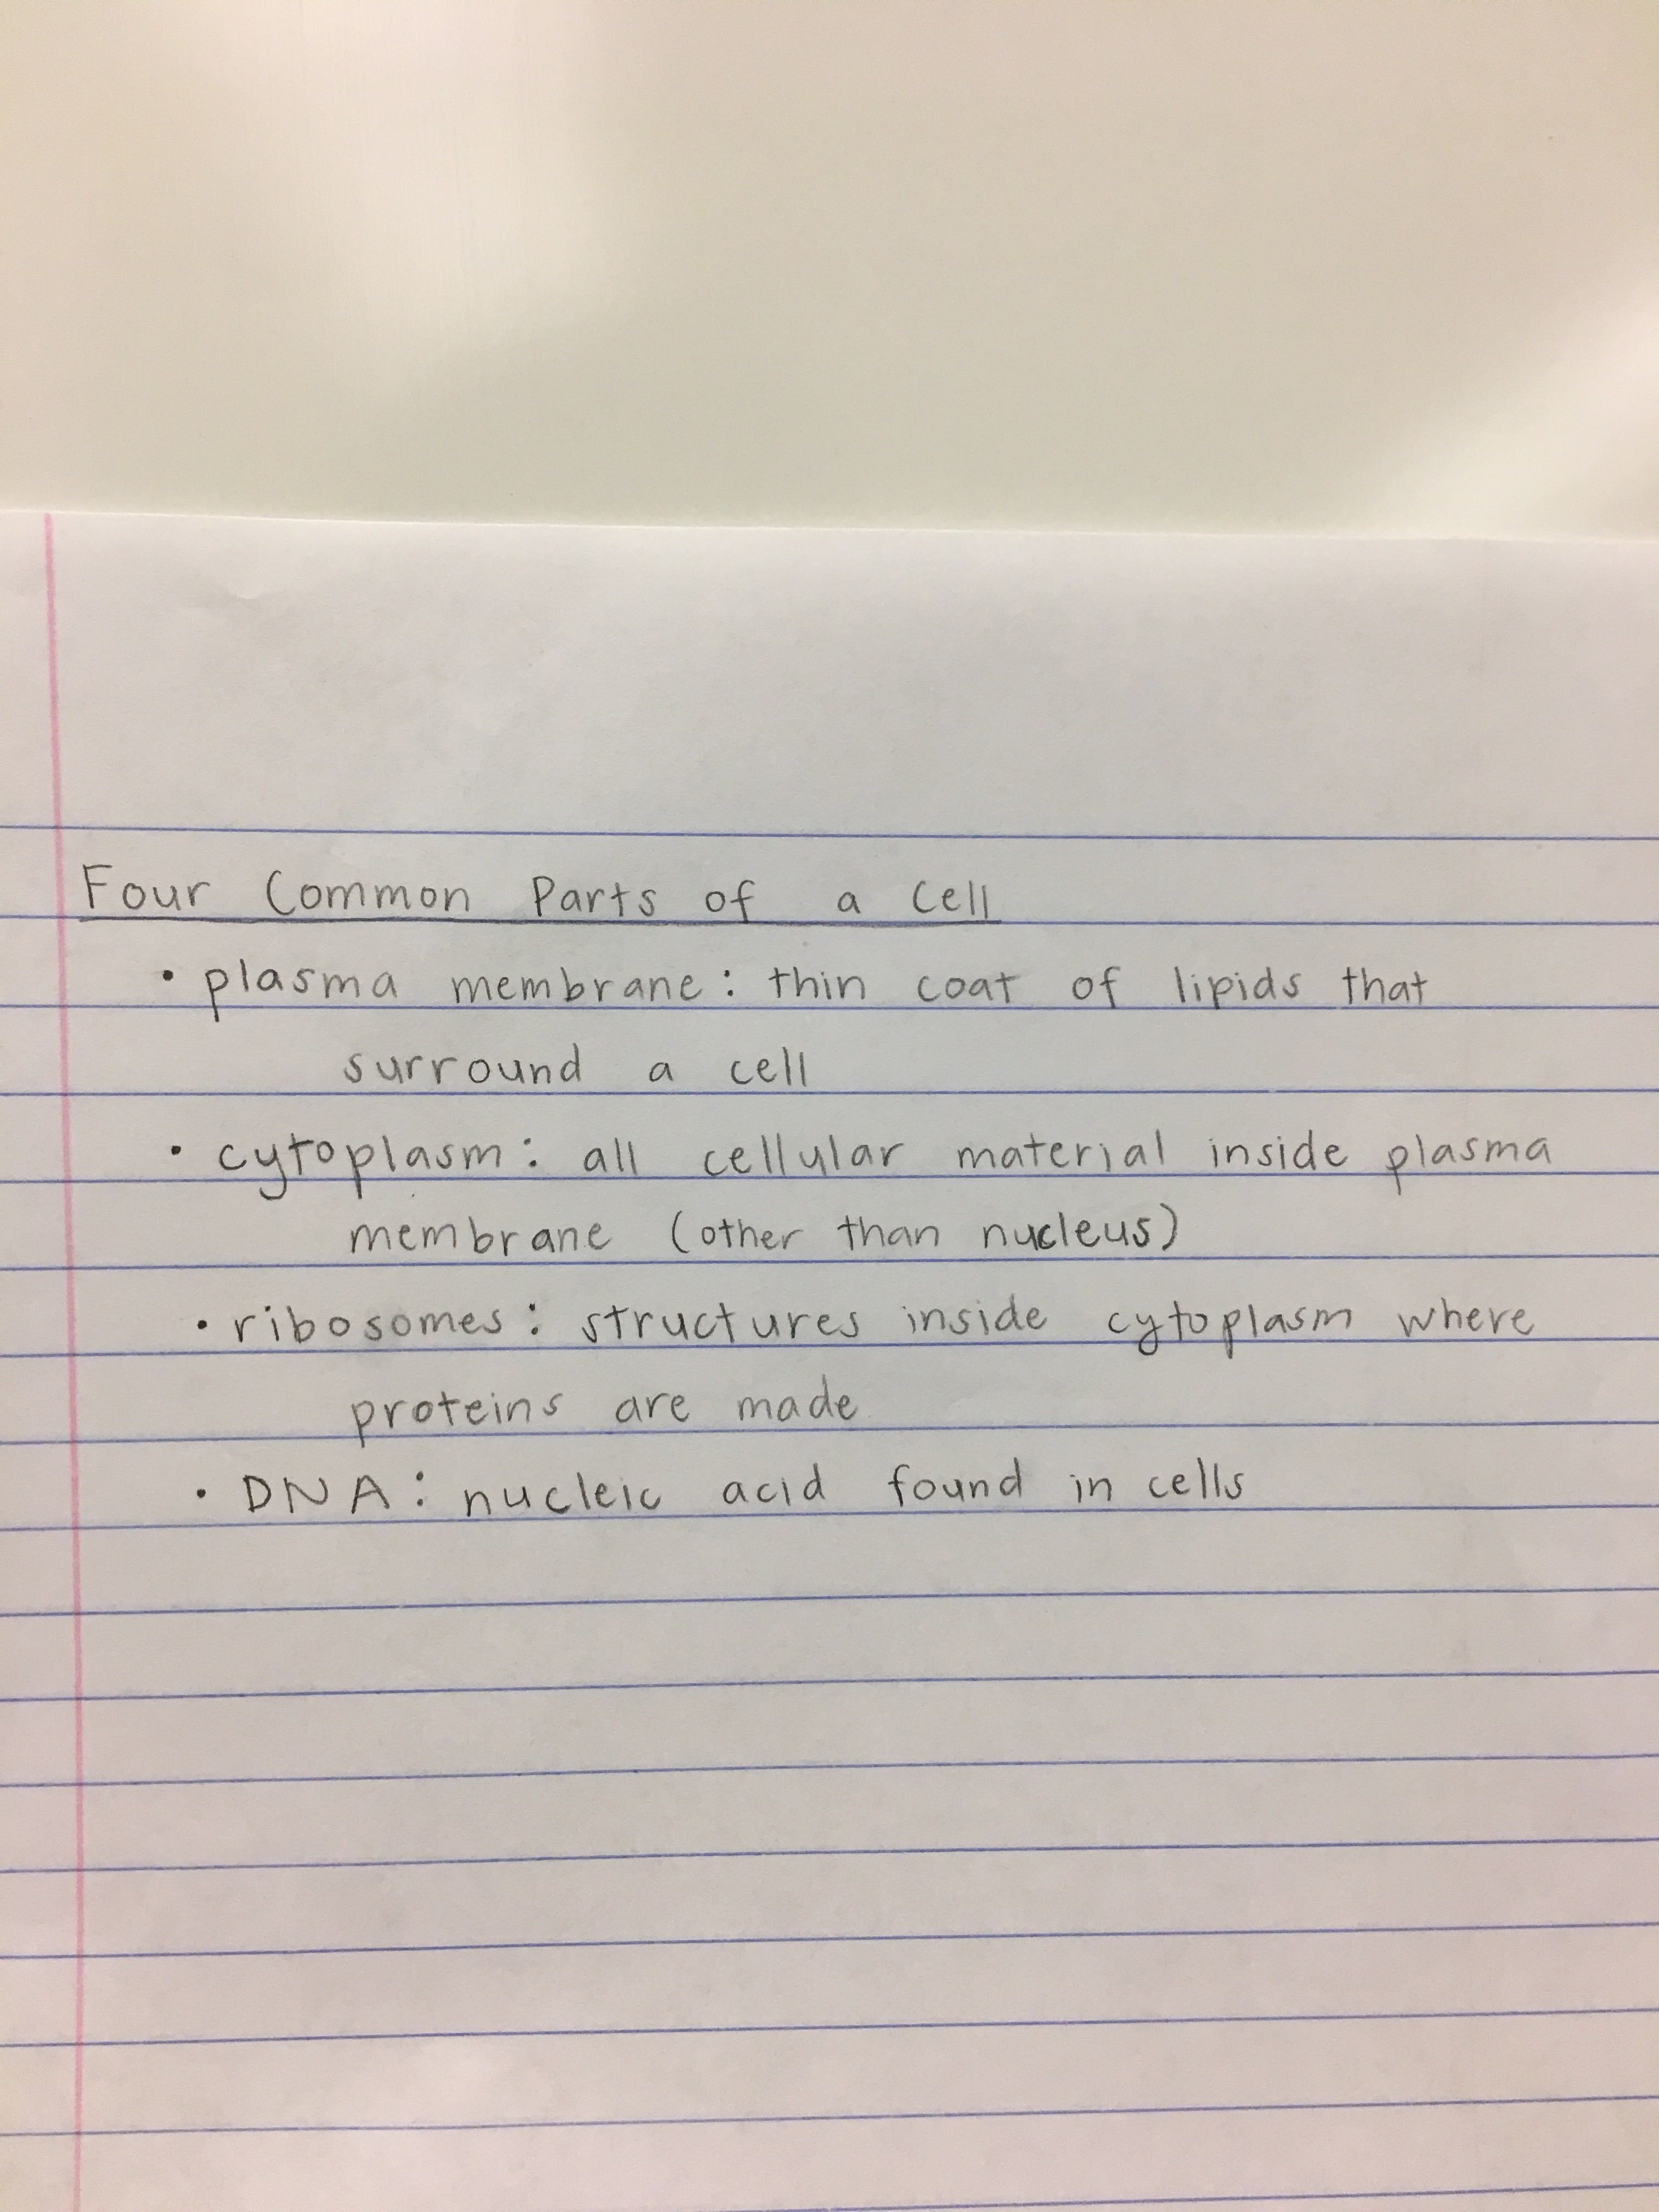 Four Common Parts of a Cell
• plasma membrane: thin coat of lipids that
surround a cell
• cytoplasm: all cellular material inside plasma
membrane (other than nucleus)
• ribosomes: structures inside cytoplasm where
proteins are made
• DNA: nucleic acid found in cells